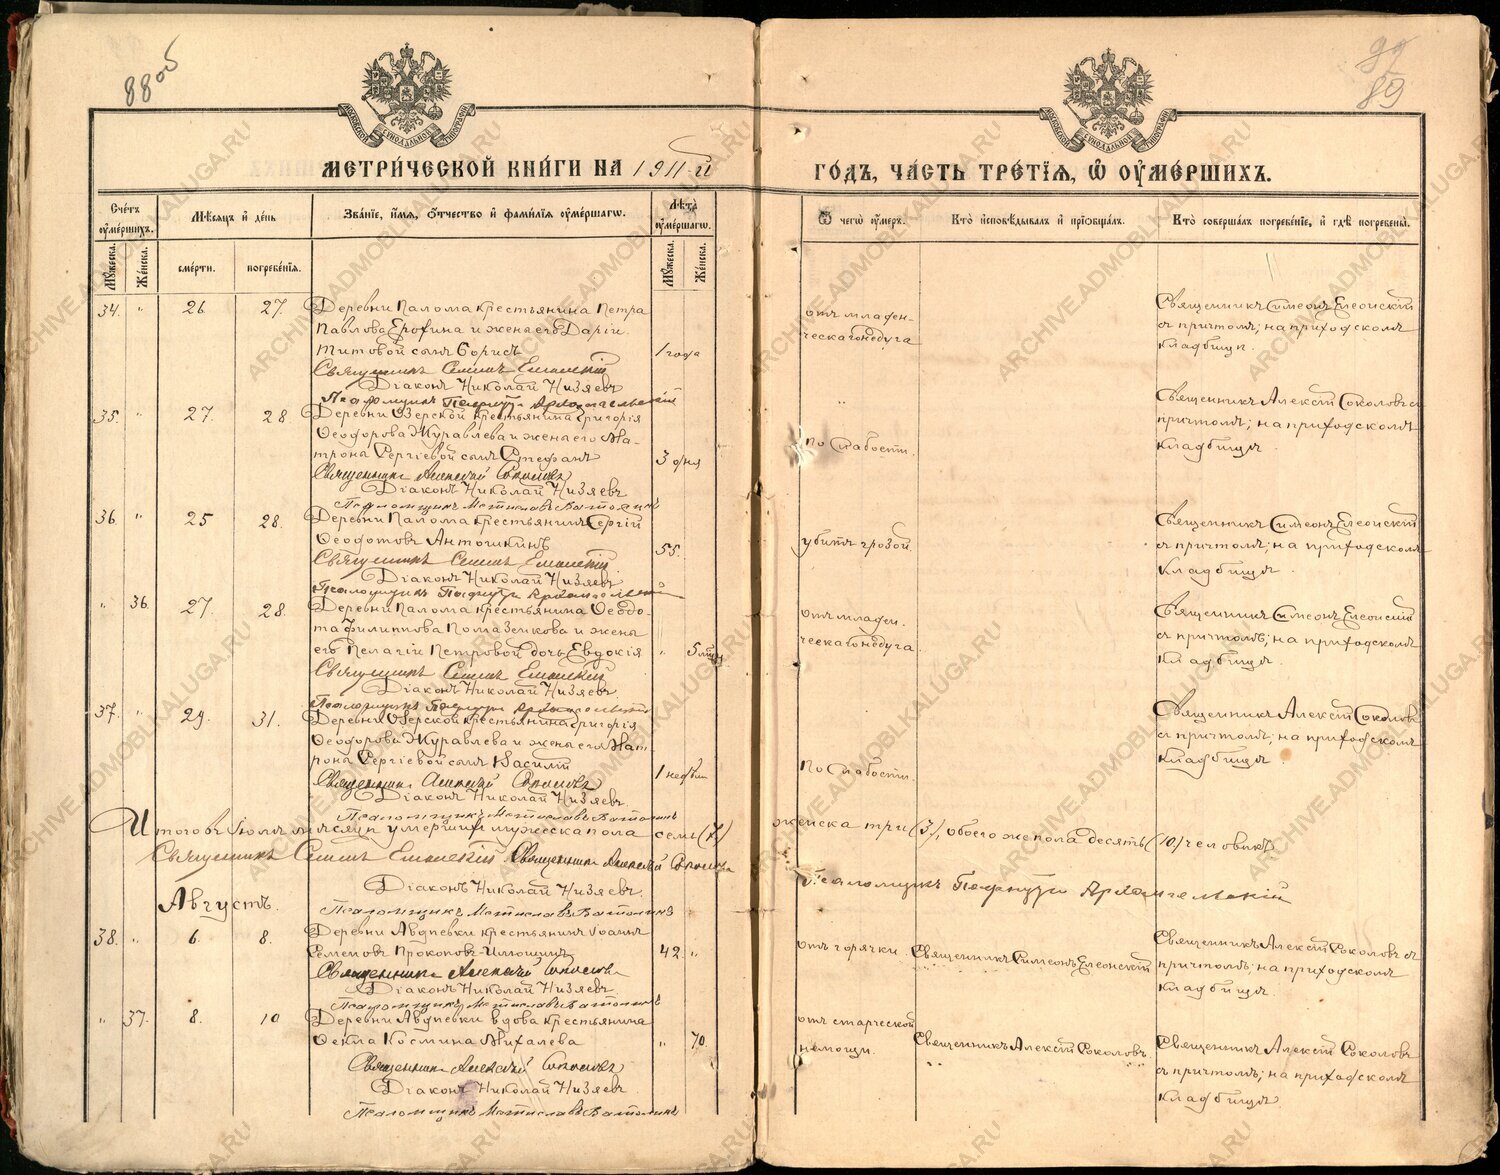 88об
82
89
МЕТРИ́ЧЕСКОЙ КНИ́ГИ НА 1911-й
ГО́ДЪ, ЧА́СТЬ ТРЕ́ТІЯ, Ѿ ОУМЕ́РШИХЪ.
Счетъ оумершихъ.
Мѣсяцъ и день
Званіе, имя, отчество и фамилія оумершагѡ.
Лѣта оумершагѡ.
Ѿ чегѡ оумеръ.
Кто исповѣдывалъ и пріобщалъ.
Кто совершалъ погребеніе, и гдѣ погребены.
Мужеска.
Женска.
смерти.
погребенія.
Мужеска.
Женска.
34. " 26 27. Деревни Палома крестьянина Петра
Павлова Ерохина и жены его Даріи
Титовой сынъ Борисъ 1 года
Священникъ Симеонъ Елеонскій
Діаконъ Николай Низяевъ
Псаломщикъ Пафнутій Архангельскій
отъ младен-
ческаго недуга
Священникъ Симеонъ Елеонскій
съ причтомъ; на приходскомъ
кладбищѣ.
35. " 27 28 Деревни Озерской крестьянина Григорія
Ѳеодорова Журавлева и жены его Ма-
трона Сергіевой сынъ Стефанъ 3 дня
Священникъ Алексій Соколовъ
Діаконъ Николай Низяевъ
Псаломщикъ Мстиславъ
По слабости.
Священникъ Алексій Соколовъ съ
причтомъ; на приходскомъ
кладбищѣ.
36 " 25 28. Деревни Палома крестьянинъ Сергій
Ѳеодотовъ Антошкинъ 55.
Священникъ Симеонъ Елеонскій
Діаконъ Николай Низяевъ
Псаломщикъ Пафнутій Архангельскій
убитъ грозой.
Священникъ Симеонъ Елеонскій
съ причтомъ; на приходскомъ
кладбищѣ.
" 36. 27. 28 Деревни Палома крестьянина Ѳеодо-
та Филиппова Помазенкова и жены
его Пелагіи Петровой дочь Евдокія " 5 мѣсяц.
Священникъ Симеонъ Елеонскій
Діаконъ Николай Низяевъ
Псаломщикъ Пафнутій Архангельскій
отъ младен-
ческаго недуга.
Священникъ Симеонъ Елеонскій
съ причтомъ; на приходскомъ
кладбищѣ.
37. " 29. 31. Деревни Озерской крестьянина Григорія
Ѳеодорова Журавлева и жены его Мат-
рона Сергіевой сынъ Василій 1 недѣли
Священникъ Алексій Соколовъ
Діаконъ Николай Низяевъ
Псаломщикъ Мстиславъ
По слабости.
Священникъ Алексій Соколовъ
съ причтомъ; на приходскомъ
кладбищѣ.
Итого въ Іюлѣ мѣсяцѣ умершихъ мужеска пола семь (7)
женска три (3), обоего же пола десять (10) человѣкъ
Священникъ Симеонъ Елеонскій Священникъ Алексій Соколовъ
Діаконъ Николай Низяевъ.
Псаломщикъ Пафнутій Архангельскій
Августъ.
Псаломщикъ Мстиславъ
38. " 6. 8. Деревни Авдѣевки крестьянинъ Іоаннъ
Семеновъ Прокоповъ-Илюшинъ 42. "
Священникъ Алексій Соколовъ
Діаконъ Николай Низяевъ.
Псаломщикъ Мстиславъ
отъ горячки. Священникъ Симеонъ Елеонскій
Священникъ Алексій Соколовъ съ
причтомъ; на приходскомъ
кладбищѣ.
" 37. 8. 10 Деревни Авдѣевки вдова крестьянина
Ѳекла Космина Михалева " 70.
Священникъ Алексій Соколовъ
Діаконъ Николай Низяевъ
Псаломщикъ Мстиславъ
отъ старческой
немощи. Священникъ Алексій Соколовъ.
Священникъ Алексій Соколовъ
съ причтомъ; на приходскомъ
кладбищѣ.
ARCHIVE.ADMOBLKALUGA.RU